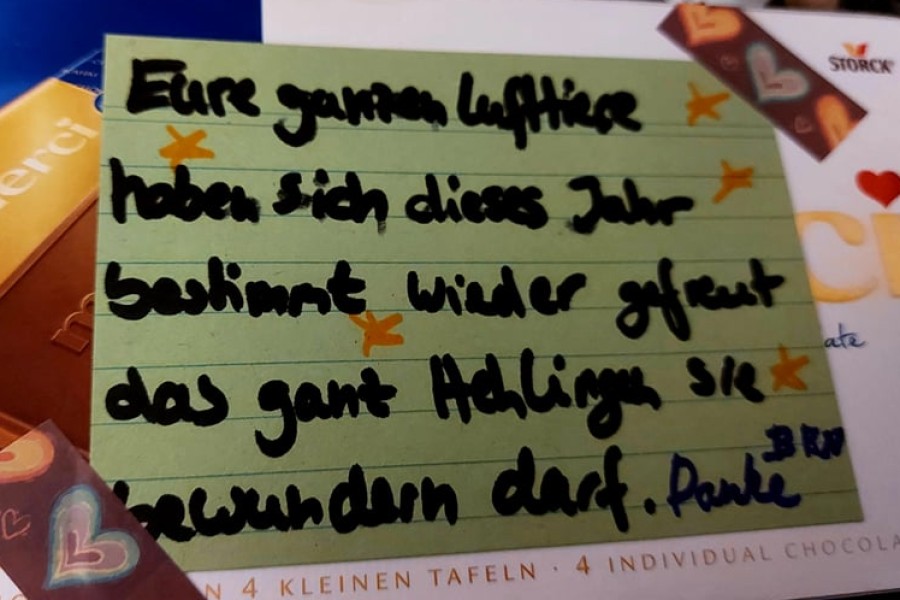 STORCK
erci
Eure ganzen Lufttiere
haben sich dieses Jahr
bestimmt wieder gefreut
ate
das ganz Hehlingen sie
bewundern darf. Danke
N 4 KLEINEN TAFELN · 4 INDIVIDUAL CHOCOLA